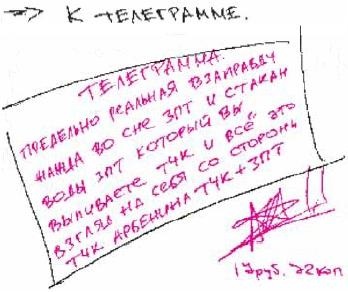 → К ТЕЛЕГРАММЕ.
ТЕЛЕГРАММА.
ПРЕДЕЛЬНО РЕАЛЬНАЯ ВЗАПРАВДУ
ЖАЖДА ВО СНЕ ЗПТ И СТАКАН
ВОДЫ ЗПТ КОТОРЫЙ ВЫ
ВЫПИВАЕТЕ ТЧК И ВСЁ ЭТО
ВЗГЛЯД НА СЕБЯ СО СТОРОНЫ
ТЧК АРБЕНИНА ТЧК + ЗПТ
17руб. 22коп